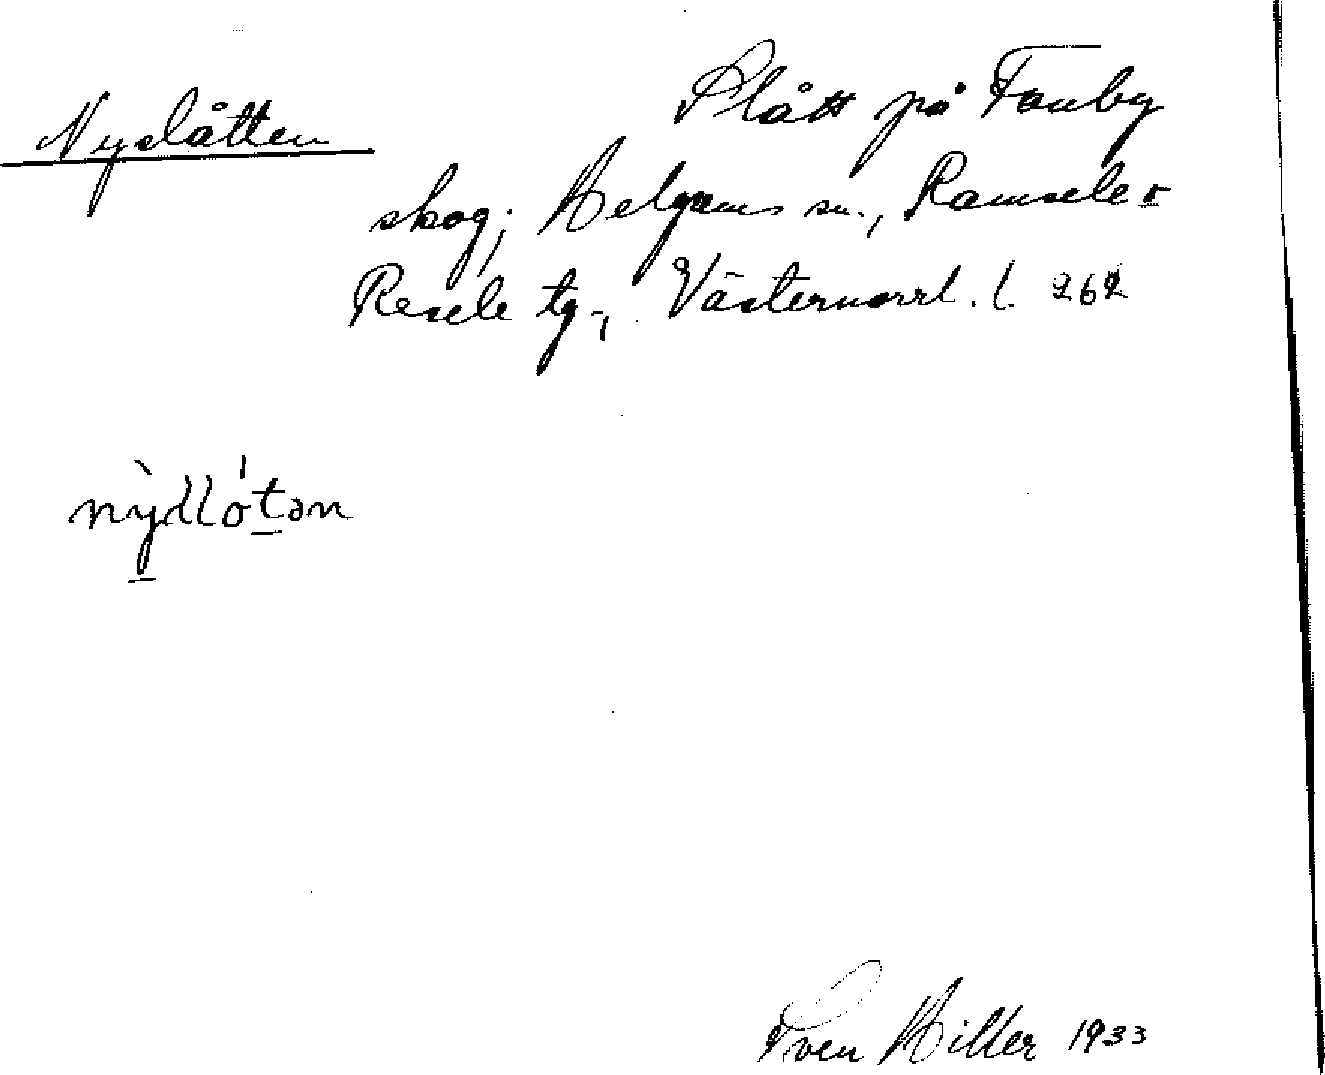 Nyslåtten
Slått på Fanby
skog; Helgums sn., Ramsele o
Resele tg., Västernorrl. l. 262
nỳdlótən
Sven Hiller 1933